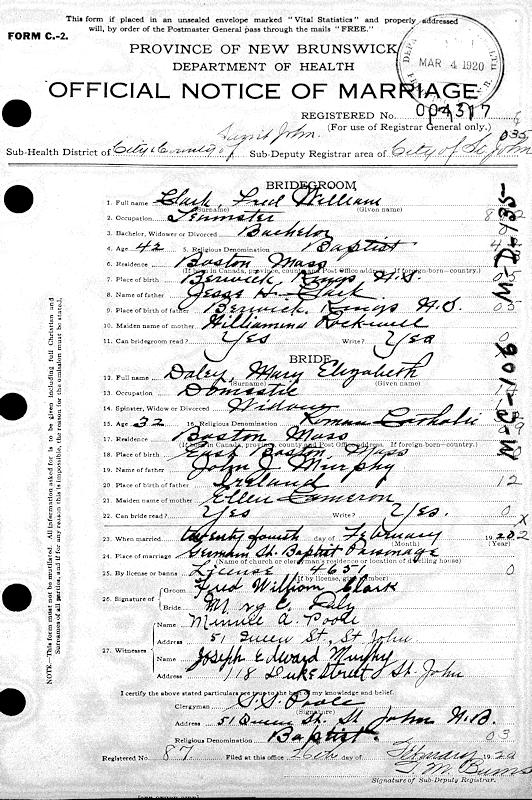 This form if placed in an unsealed envelope marked "Vital Statistics" and properly addressed
will, by order of the Postmaster General pass through the mails "FREE."
FORM C.-2.
PROVINCE OF NEW BRUNSWICK
DEPARTMENT OF HEALTH
MAR 4 1920
OFFICIAL NOTICE OF MARRIAGE
REGISTERED No. 004317
(For use of Registrar General only.) 035
Sub-Health District of City & County of Saint John Sub-Deputy Registrar area of City of St. John
BRIDEGROOM
1. Full name Clark, Fred William
(Surname) (Given name)
2. Occupation Teamster
3. Bachelor, Widower or Divorced Bachelor
4. Age 42 5. Religious Denomination Baptist
6. Residence Boston Mass
(If born in Canada, province, county and Post Office address. If foreign-born—country.)
7. Place of birth Berwick, Kings N.S.
8. Name of father Jesse H. Clark
9. Place of birth of father Berwick, Kings N.S. 03
10. Maiden name of mother Williamina Rockwell
11. Can bridegroom read? Yes Write? Yes
BRIDE
12. Full name Daley, Mary Elizabeth
(Surname) (Given name)
13. Occupation Domestic
14. Spinster, Widow or Divorced Widow
15. Age 32 16. Religious Denomination Roman Catholic
17. Residence Boston Mass
(If born in Canada, province, county and Post Office address. If foreign-born—country.)
18. Place of birth East Boston, Mass
19. Name of father John J. Murphy
20. Place of birth of father Ireland 12
21. Maiden name of mother Ellen Cameron
22. Can bride read? Yes Write? Yes. 0
23. When married twenty fourth day of February 1920
(Month) (Year)
24. Place of marriage Germain St. Baptist Parsonage
(Name of church or clergyman's residence or location of dwelling house)
25. By license or banns License 4651 0
(If by license, give number)
26. Signature of Groom Fred William Clark
Bride Mary E. Daly
27. Witnesses Name Minnie A. Poole
Address 51 Queen St, St John
Name Joseph Edward Murphy
Address 118 Duke Street St. John
I certify the above stated particulars are true to the best of my knowledge and belief.
Clergyman S. S. Poole
(Signature)
Address 51 Queen St. St John N.B.
Religious Denomination Baptist. 03
Registered No. 87 Filed at this office 26th day of February 1920
Signature of Sub-Deputy Registrar.
NOTE—This form must not be mutilated. All information asked for is to be given including full Christian and
Surnames of all parties, and if for any reason this is impossible, the reason for the omission must be stated.